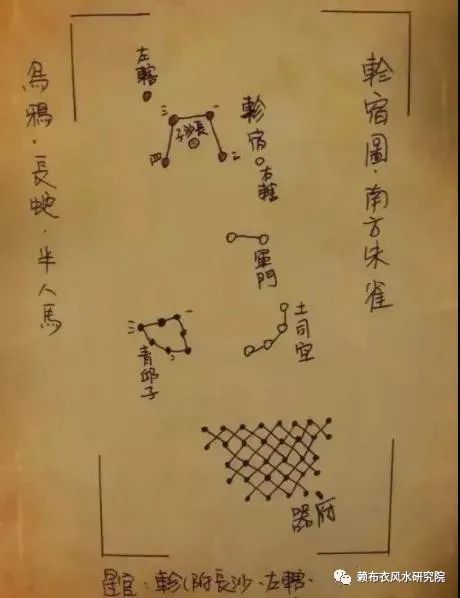 軫宿圖·南方朱雀
烏鴉·長蛇·半人馬
左轄
三
一
長沙子
四
二
軫宿
右轄
軍門
土司空
三
一
二
青邱子
器府
星官：軫(附長沙、左轄、
赖布衣风水研究院